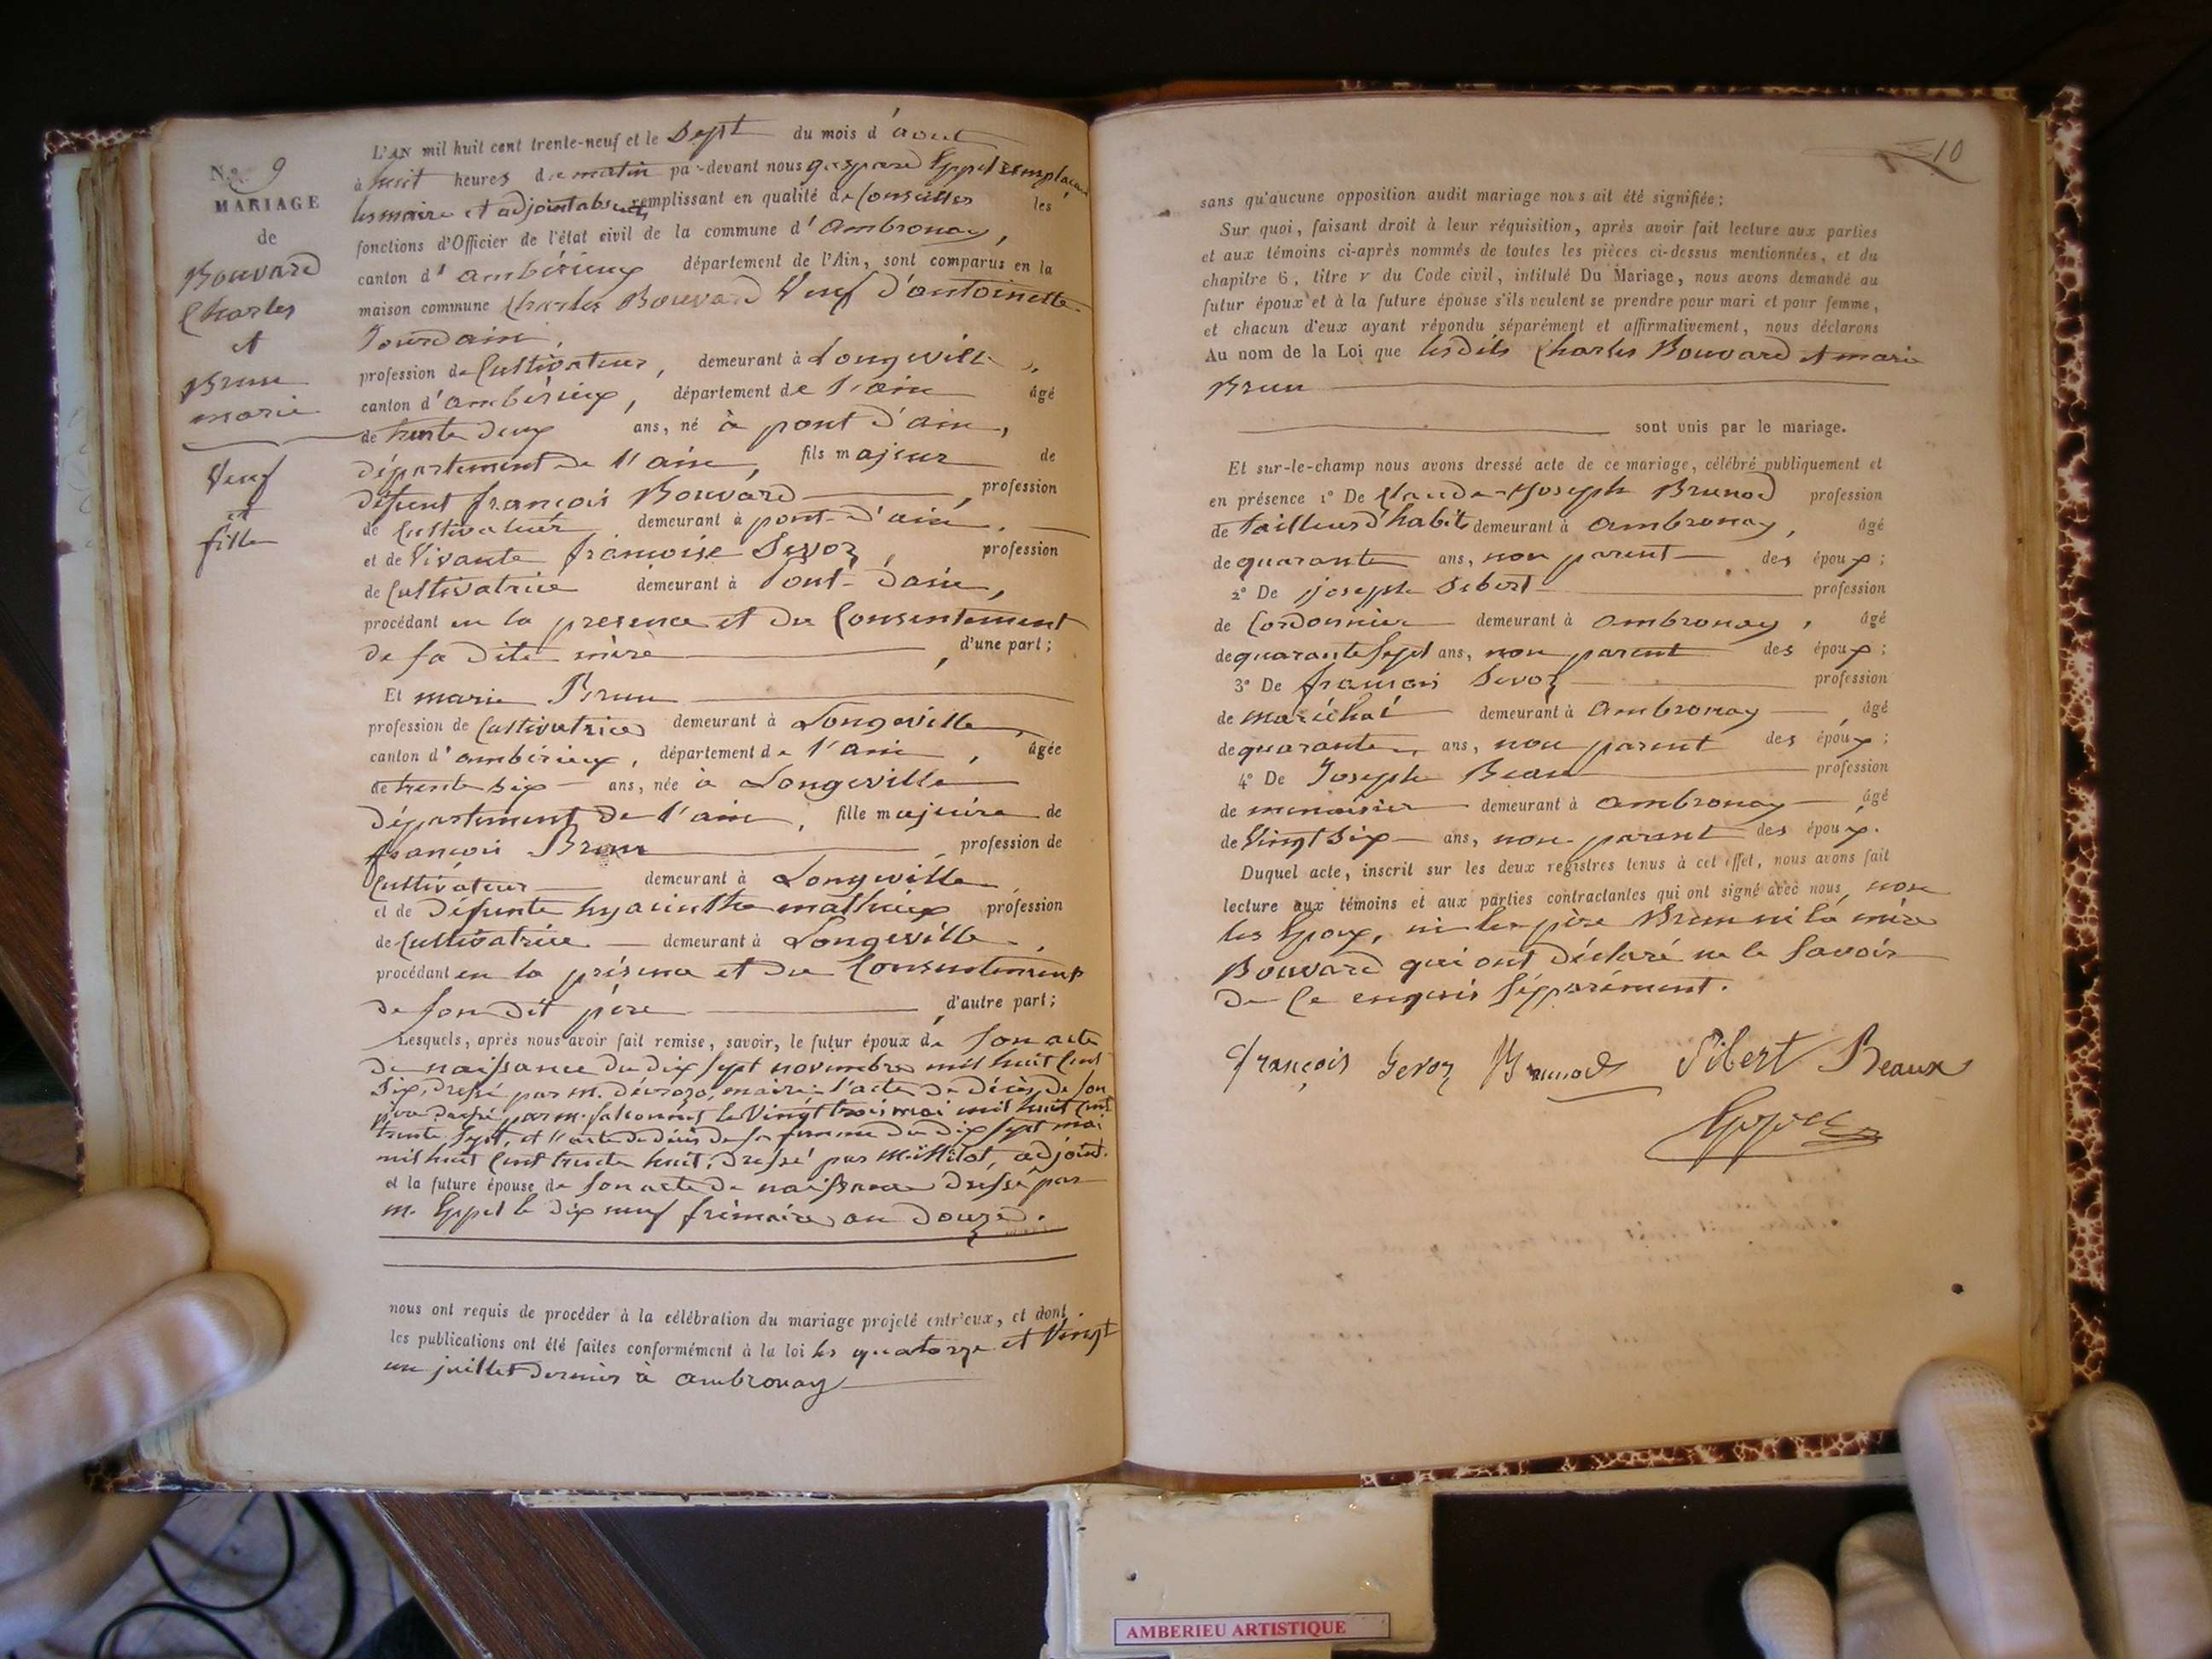 N.o 9
MARIAGE
de
Bouvard
Charles
et
Brun
marie
Veuf
et
fille
L'AN mil huit cent trente-neuf et le Sept du mois d'aout
à huit heures du matin par-devant nous gaspard Eppel remplaçant
les maire et adjoint absents remplissant en qualité de Conseiller les
fonctions d'Officier de l'état civil de la commune d'ambronay,
canton d'ambérieux département de l'Ain, sont comparus en la
maison commune Charles Bouvard Veuf d'antoinette
Jourdain,
profession de Cultivateur, demeurant à Longeville,
canton d'ambérieux, département de l'ain âgé
de trente deux ans, né à pont d'ain,
département de l'ain, fils majeur de
défunt françois Bouvard, profession
de Cultivateur demeurant à pont-d'ain.
et de Vivante françoise Sevoz, profession
de Cultivatrice demeurant à Pont-d'ain,
procédant en la presence et du Consentement
de sa dite mère, d'une part;
Et marie Brun
profession de Cultivatrice demeurant à Longeville,
canton d'ambérieux, département de l'ain, âgée
de trente six ans, née à Longeville
département de l'ain, fille majeure de
françois Brun profession de
Cultivateur demeurant à Longeville,
et de Défunte hyacinthe mathieux profession
de Cultivatrice demeurant à Longeville,
procédant en la présence et du Consentement
de son dit père, d'autre part;
Lesquels, après nous avoir fait remise, savoir, le futur époux de Son acte
de naissance du dix sept novembre mil huit Cent
Six, dressé par m. maire; l'acte de Décès de son
père dressé par m. le Vingt trois mai mil huit Cent
trente Sept, et l'acte de décès de sa femme du dix sept mai
mil huit Cent trente huit, dressé par adjoint.
et la future épouse de Son acte de naissance dressé par
m. Eppel le dix neuf frimaire an Douze.
nous ont requis de procéder à la célébration du mariage projeté entr'eux, et dont
les publications ont été faites conformément à la loi les quatorze et Vingt
un juillet dernier à ambronay
10
sans qu'aucune opposition audit mariage nous ait été signifiée;
Sur quoi, faisant droit à leur réquisition, après avoir fait lecture aux parties
et aux témoins ci-après nommés de toutes les pièces ci-dessus mentionnées, et du
chapitre 6, titre v du Code civil, intitulé Du Mariage, nous avons demandé au
futur époux et à la future épouse s'ils veulent se prendre pour mari et pour femme,
et chacun d'eux ayant répondu séparément et affirmativement, nous déclarons
Au nom de la Loi que lesdits Charles Bouvard et marie
Brun
sont unis par le mariage.
Et sur-le-champ nous avons dressé acte de ce mariage, célébré publiquement et
en présence 1° De Claude-Joseph Brunod profession
de tailleur d'habits demeurant à ambronay, âgé
de quarante ans, non parent des époux;
2° De joseph Sibert profession
de Cordonnier demeurant à ambronay, âgé
de quarante Sept ans, non parent des époux;
3° De françois Sevoz profession
de maréchal demeurant à ambronay, âgé
de quarante ans, non parent des époux;
4° De Joseph Beau profession
de menuisier demeurant à ambronay, âgé
de Vingt Six ans, non parent des époux.
Duquel acte, inscrit sur les deux registres tenus à cet effet, nous avons fait
lecture aux témoins et aux parties contractantes qui ont signé avec nous, non
les Epoux, ni le père Brun ni la mère
Bouvard qui ont déclaré ne le Savoir
de Ce enquis Séparément.
François Sevoz Brunod Sibert Beaux
Eppel
AMBERIEU ARTISTIQUE